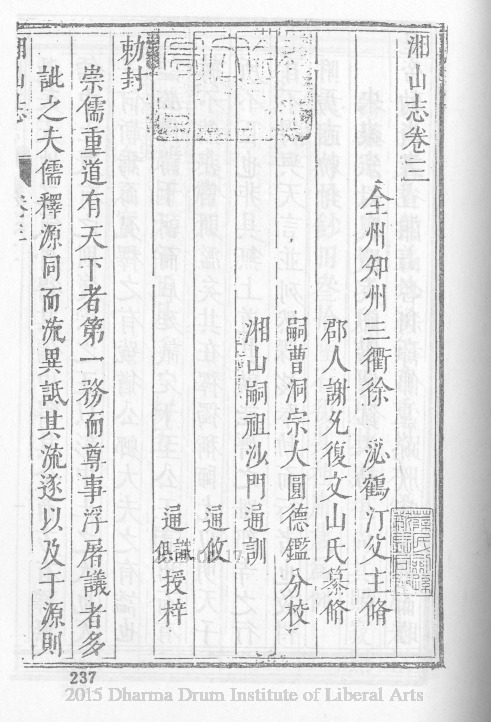 湘山志卷三
全州知州三衢徐泌鶴汀父主脩
郡人謝允復文山氏纂脩
嗣曹洞宗大圓德鑑分校
湘山嗣祖沙門通訓
通攸
通識俱授梓
勅封
崇儒重道有天下者第一務而尊事浮屠議者多
訿之夫儒釋源同而流異詆其流遂以及于源則
湘山志
卷三
237
2015 Dharma Drum Institute of Liberal Arts